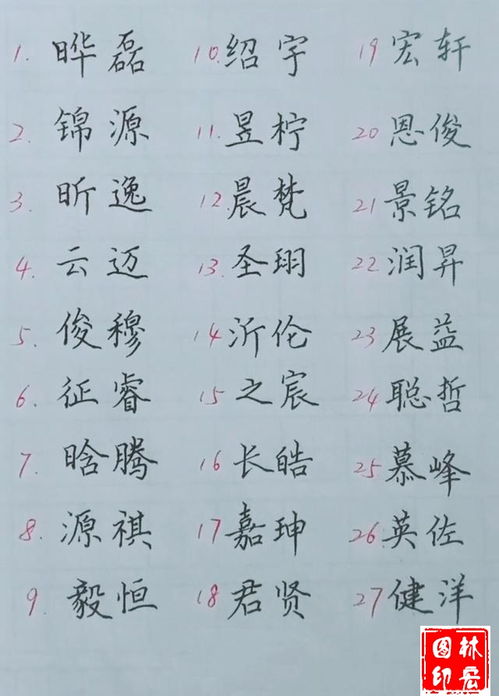 1. 晔磊
2. 锦源
3. 昕逸
4. 云迈
5. 俊穆
6. 征睿
7. 晗腾
8. 源祺
9. 毅恒
10. 绍宇
11. 昱柠
12 晨梵
13. 圣珝
14 沂伦
15 之宸
16 长皓
17 嘉珅
18 君贤
19 宏轩
20 恩俊
21 景铭
22 润昇
23 展益
24 聪哲
25 慕峰
26. 英佐
27 健洋
林
图印